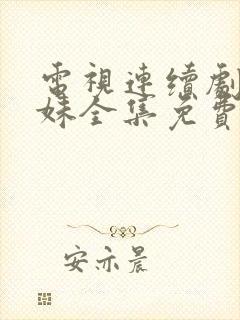 電視連續劇
妹全集免費
安亦晨